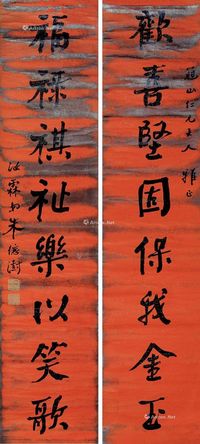 歡喜堅固保我金玉
冠山仁兄大人 雅正
福祿祺祉樂以笑歌
汝霖弟朱